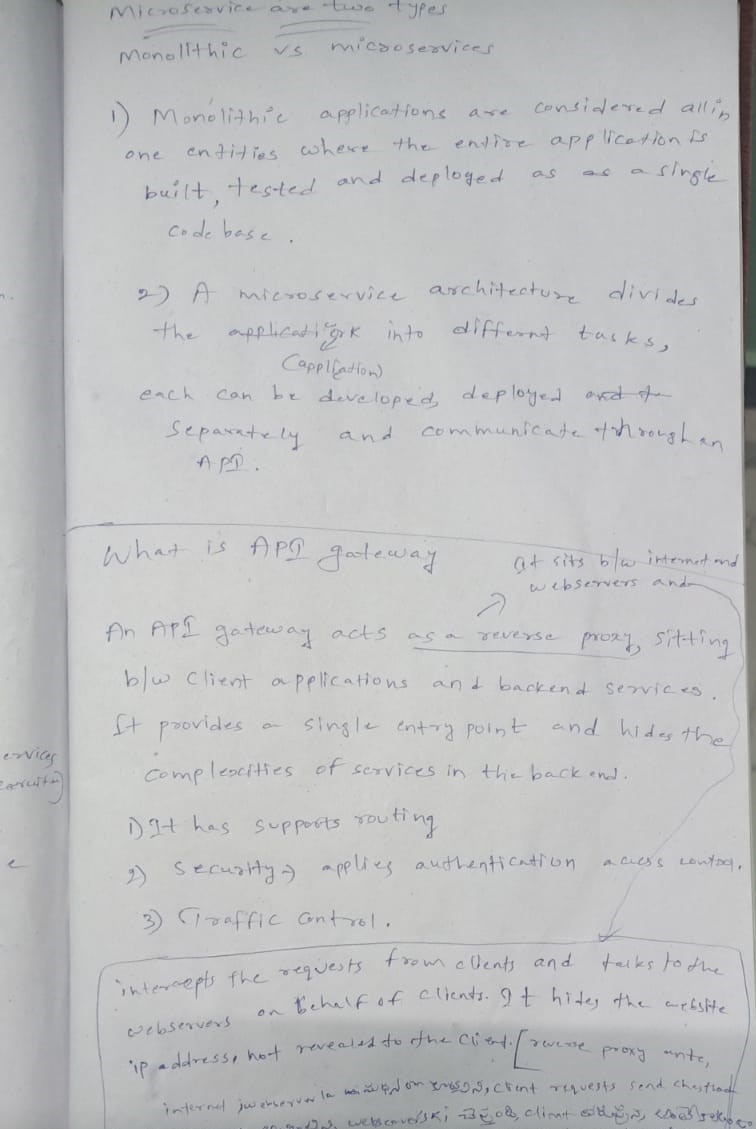 Microservice are two types
Monollthic vs microservices
1) Monolithic applications are considered all in
one entities where the entire application is
built, tested and deployed as as a single
code base.
2) A microservice architecture divides
the into differnt tasks,
(application)
each can be developed, deployed and
separately and communicate through an
API.
What is API gateway
It sits b/w internet and
webservers and
An API gateway acts as a reverse proxy, sitting
b/w client applications and backend services.
It provides a single entry point and hides the
complexcities of services in the backend.
1) It has supports routing
2) Security → applies authentication access control.
3) Traffic control.
ervices
e
intercepts the requests from clients and talks to the
webservers on behalf of clients. It hides the website
ip address, not revealed to the client. [reverse proxy ante,
internet webserver la client requests send
client